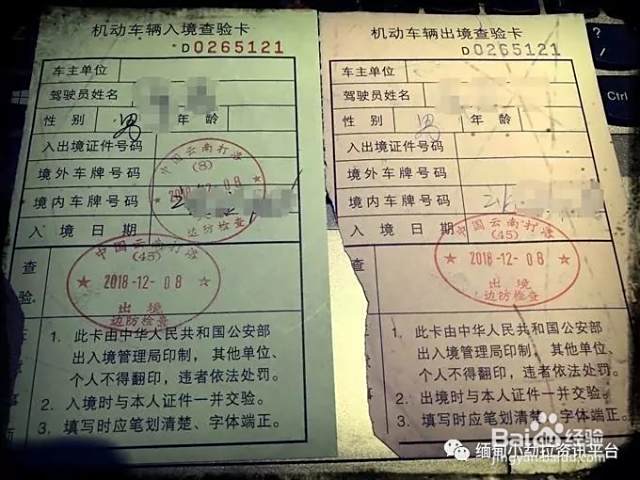 机动车辆入境查验卡
D0265121
车主单位
驾驶员姓名
性别 男 年龄
入出境证件号码
境外车牌号码
境内车牌号码
入境日期
中国云南打洛
(8)
边防检查
中国云南打洛
(45)
2018-12-08
出境
边防检查
查
验
1. 此卡由中华人民共和国公安部
出入境管理局印制,其他单位、
个人不得翻印,违者依法处罚。
2. 入境时与本人证件一并交验。
3. 填写时应笔划清楚、字体端正。
机动车辆出境查验卡
D0265121
车主单位
驾驶员姓名
性别 男 年龄
入出境证件号码
境外车牌号码
境内车牌号码
入境日期
中国云南打洛
(45)
2018-12-08
出境
边防检查
1. 此卡由中华人民共和国公安部
出入境管理局印制,其他单位、
个人不得翻印,违者依法处罚。
2. 出境时与本人证件一并交验。
3. 填写时应笔划清楚、字体端正。
Ctrl
缅甸小勐拉资讯平台
Baidu经验
jingyan.baidu.com